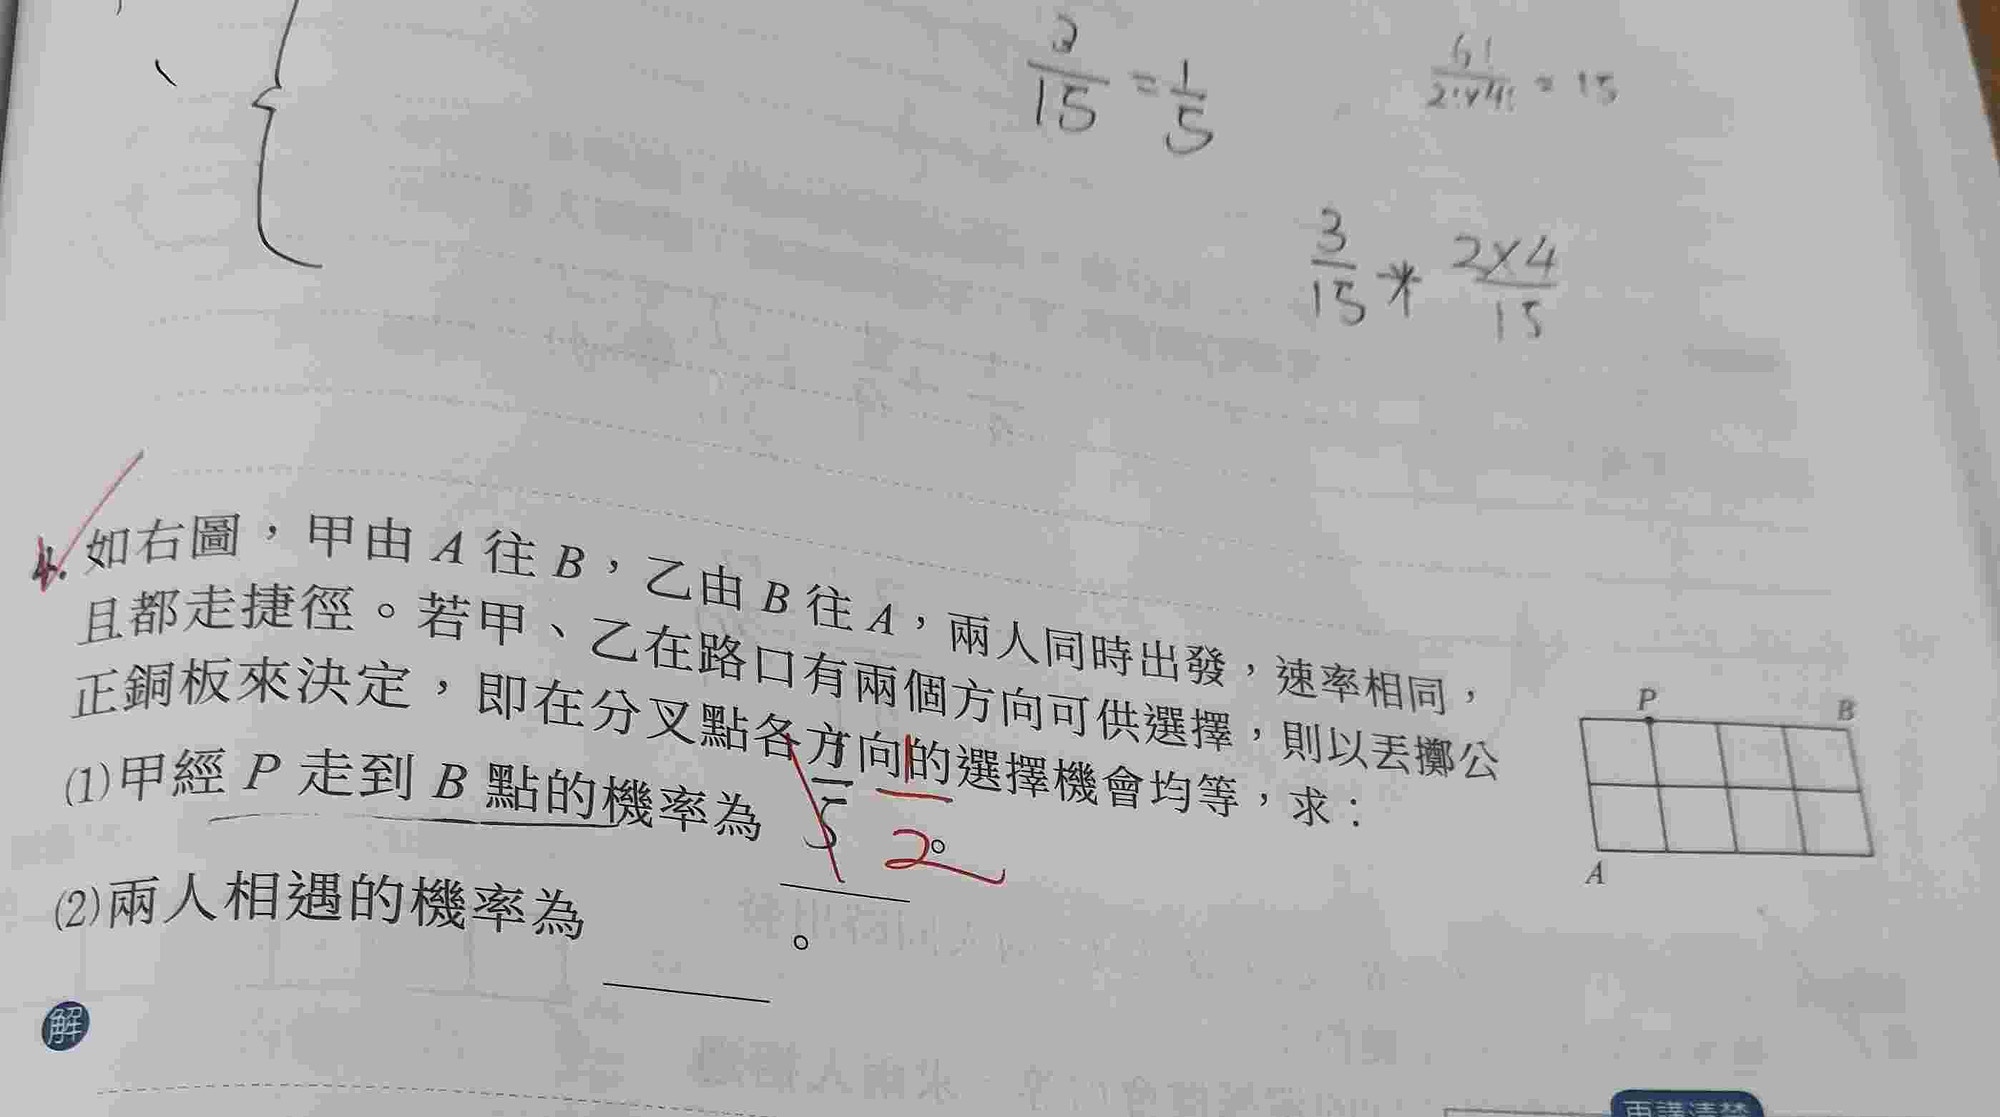 3/15 = 1/5
6!/2!×4! = 15
3/15 * 2×4/15
4. 如右圖，甲由 A 往 B，乙由 B 往 A，兩人同時出發，速率相同，
且都走捷徑。若甲、乙在路口有兩個方向可供選擇，則以丟擲公
正銅板來決定，即在分叉點各方向的選擇機會均等，求：
(1)甲經 P 走到 B 點的機率為 1/5 1/2 。
(2)兩人相遇的機率為 。
P
B
A
解
再講清楚